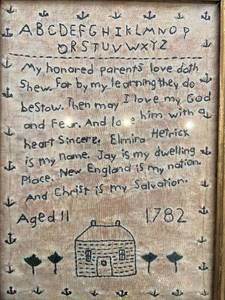 ABCDEFGHIKLMNOP
QRSTUVWXYZ
My honored parents love doth
Shew. For by my learning they do
bestow. Then may I love my God
and Fear. And love him with a
heart Sincere. Elmira Hetrick
is my name. Jay is my dwelling
Place. New England is my nation.
And Christ is my Salvation.
Aged 11 1782